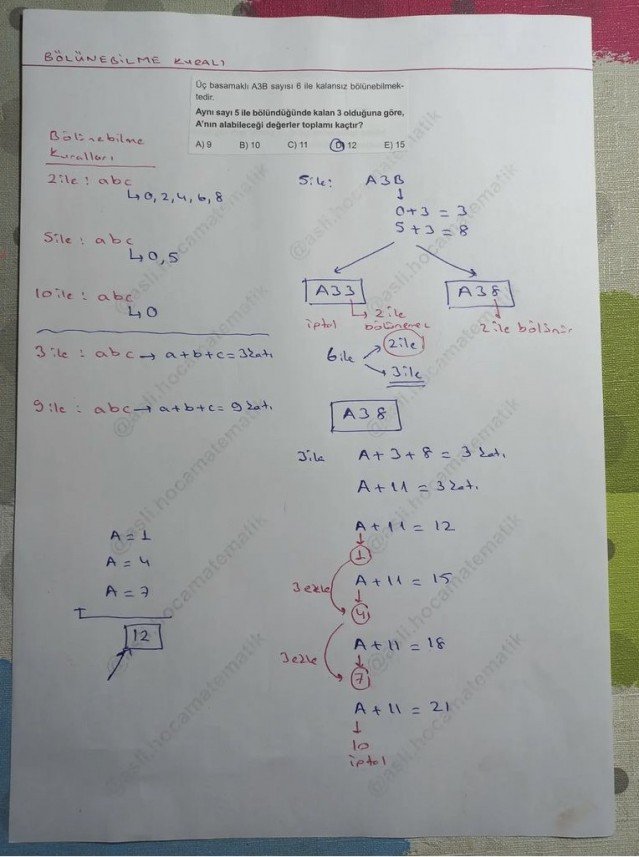 BÖLÜNEBİLME KURALI
Üç basamaklı A3B sayısı 6 ile kalansız bölünebilmek-
tedir.
Aynı sayı 5 ile bölündüğünde kalan 3 olduğuna göre,
A'nın alabileceği değerler toplamı kaçtır?
A) 9 B) 10 C) 11 D) 12 E) 15
Bölünebilme
Kuralları
2 ile : abc
↳ 0, 2, 4, 6, 8
5 ile : abc
↳ 0, 5
10 ile : abc
↳ 0
3 ile : abc → a+b+c = 3 katı
9 ile : abc → a+b+c = 9 katı
A = 1
A = 4
A = 7
+
12
5 ile : A3B
↓
0+3 = 3
5+3 = 8
A33 A38
iptal ↳ 2 ile
bölünemez
2 ile bölünür
6 ile → 2 ile
→ 3 ile
A38
3 ile A+3+8 = 3 katı
A+11 = 3 katı
A+11 = 12
↓
1
3 ekle A+11 = 15
↓
4
3 ekle A+11 = 18
↓
7
A+11 = 21
↓
10
iptal
@asli.hocamatematik
@asli.hocamatematik
@asli.hocamatematik
@asli.hocamatematik
@asli.hocamatematik
@asli.hocamatematik
@asli.hocamatematik